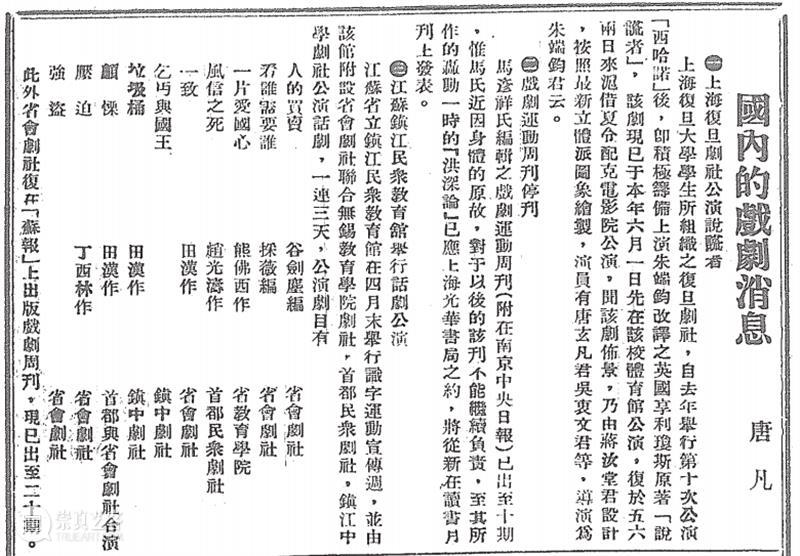 國內的戲劇消息
唐凡
㊀上海復旦劇社公演說謊者
上海復旦大學學生所組織之復旦劇社，自去年舉行第十次公演
「西哈諾」後，卽積極籌備上演朱端鈞改譯之英國享利瓊斯原著「說
謊者」，該劇現已于本年六月一日先在該校體育館公演，復於五六
兩日來滬借夏令配克電影院公演，聞該劇佈景，乃由蔣汝堂君設計
，按照最新立體派圖象繪製，演員有唐玄凡君吳衷文君等，導演爲
朱端鈞君云。
㊁戲劇運動周刊停刊
馬彥祥氏編輯之戲劇運動周刊（附在南京中央日報）已出至十期
，惟馬氏近因身體的原故，對于以後的該刊不能繼續負責，至其所
作的轟動一時的『洪深論』已應上海光華書局之約，將從新在讀書月
刊上發表。
㊂江蘇鎭江民衆敎育館舉行話劇公演
江蘇省立鎭江民衆敎育館在四月末舉行識字運動宣傳週，並由
該館附設省會劇社聯合無錫敎育學院劇社，首都民衆劇社，鎭江中
學劇社公演話劇，一連三天，公演劇目有
人的買賣 谷劍塵編 省會劇社
看誰需要誰 採薇編 省會劇社
一片愛國心 熊佛西作 省敎育學院
風信之死 趙光濤作 首都民衆劇社
一致 田漢作 省會劇社
乞丐與國王 鎭中劇社
垃圾桶 田漢作 鎭中劇社
顫慄 田漢作 首都與省會劇社合演
壓迫 丁西林作 省會劇社
強盜 省會劇社
此外省會劇社復在「蘇報」上出版戲劇周刊，現已出至二十期。